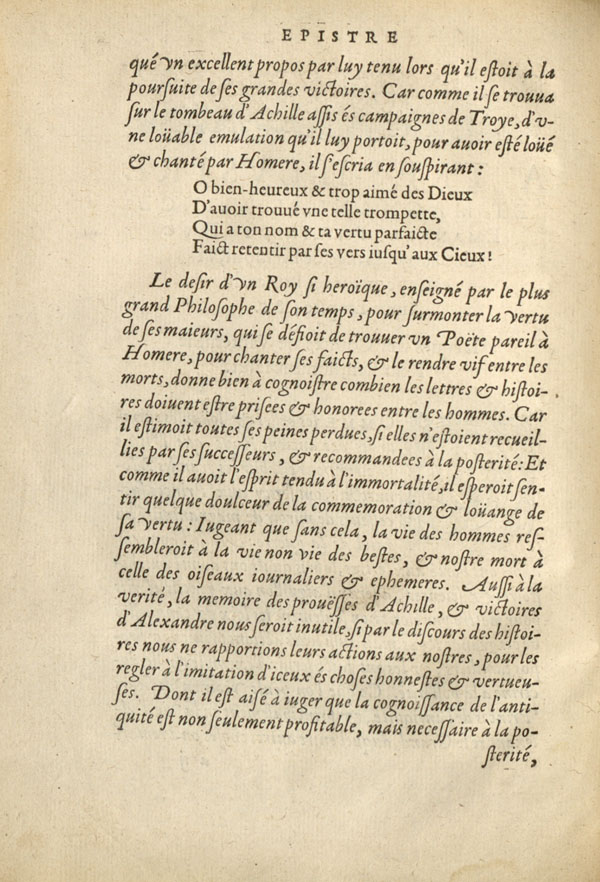 EPISTRE
qué vn excellent propos par luy tenu lors qu'il estoit à la
poursuite de ses grandes victoires. Car comme il se trouua
sur le tombeau d'Achille assis és campaignes de Troye, d'v-
ne loüable emulation qu'il luy portoit, pour auoir esté loüé
& chanté par Homere, il s'escria en souspirant :
O bien-heureux & trop aimé des Dieux
D'auoir trouué vne telle trompette,
Qui a ton nom & ta vertu parfaicte
Faict retentir par ses vers iusqu'aux Cieux!
Le desir d'vn Roy si heroïque, enseigné par le plus
grand Philosophe de son temps, pour surmonter la vertu
de ses maieurs, qui se défioit de trouuer vn Poëte pareil à
Homere, pour chanter ses faicts, & le rendre vif entre les
morts, donne bien à cognoistre combien les lettres & histoi-
res doiuent estre prisees & honorees entre les hommes. Car
il estimoit toutes ses peines perdues, si elles n'estoient recueil-
lies par ses successeurs, & recommandees à la posterité: Et
comme il auoit l'esprit tendu à l'immortalité, il esperoit sen-
tir quelque doulceur de la commemoration & loüange de
sa vertu : Iugeant que sans cela, la vie des hommes res-
sembleroit à la vie non vie des bestes, & nostre mort à
celle des oiseaux iournaliers & ephemeres. Aussi à la
verité, la memoire des prouësses d'Achille, & victoires
d'Alexandre nous seroit inutile, si par le discours des histoi-
res nous ne rapportions leurs actions aux nostres, pour les
regler à l'imitation d'iceux és choses honnestes & vertueu-
ses. Dont il est aisé à iuger que la cognoissance de l'anti-
quité est non seulement profitable, mais necessaire à la po-
sterité,